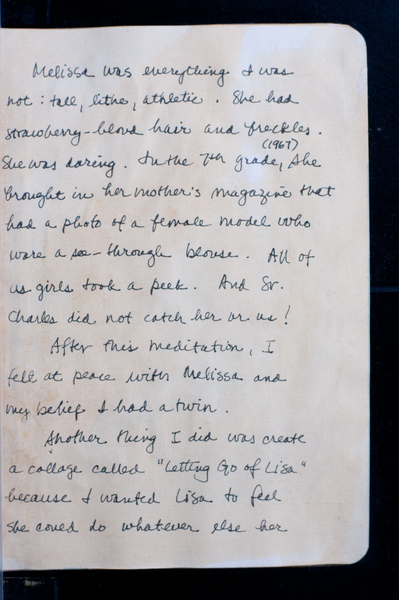 Melissa was everything I was
not: tall, lithe, athletic. She had
strawberry-blond hair and freckles.
(1967)
She was daring. In the 7th grade, she
brought in her mother's magazine that
had a photo of a female model who
wore a see-through blouse. All of
us girls took a peek. And Sr.
Charles did not catch her or us!
After this meditation, I
fell at peace with Melissa and
my belief I had a twin.
Another thing I did was create
a collage called "Letting Go of Lisa"
because I wanted Lisa to feel
she could do whatever else her